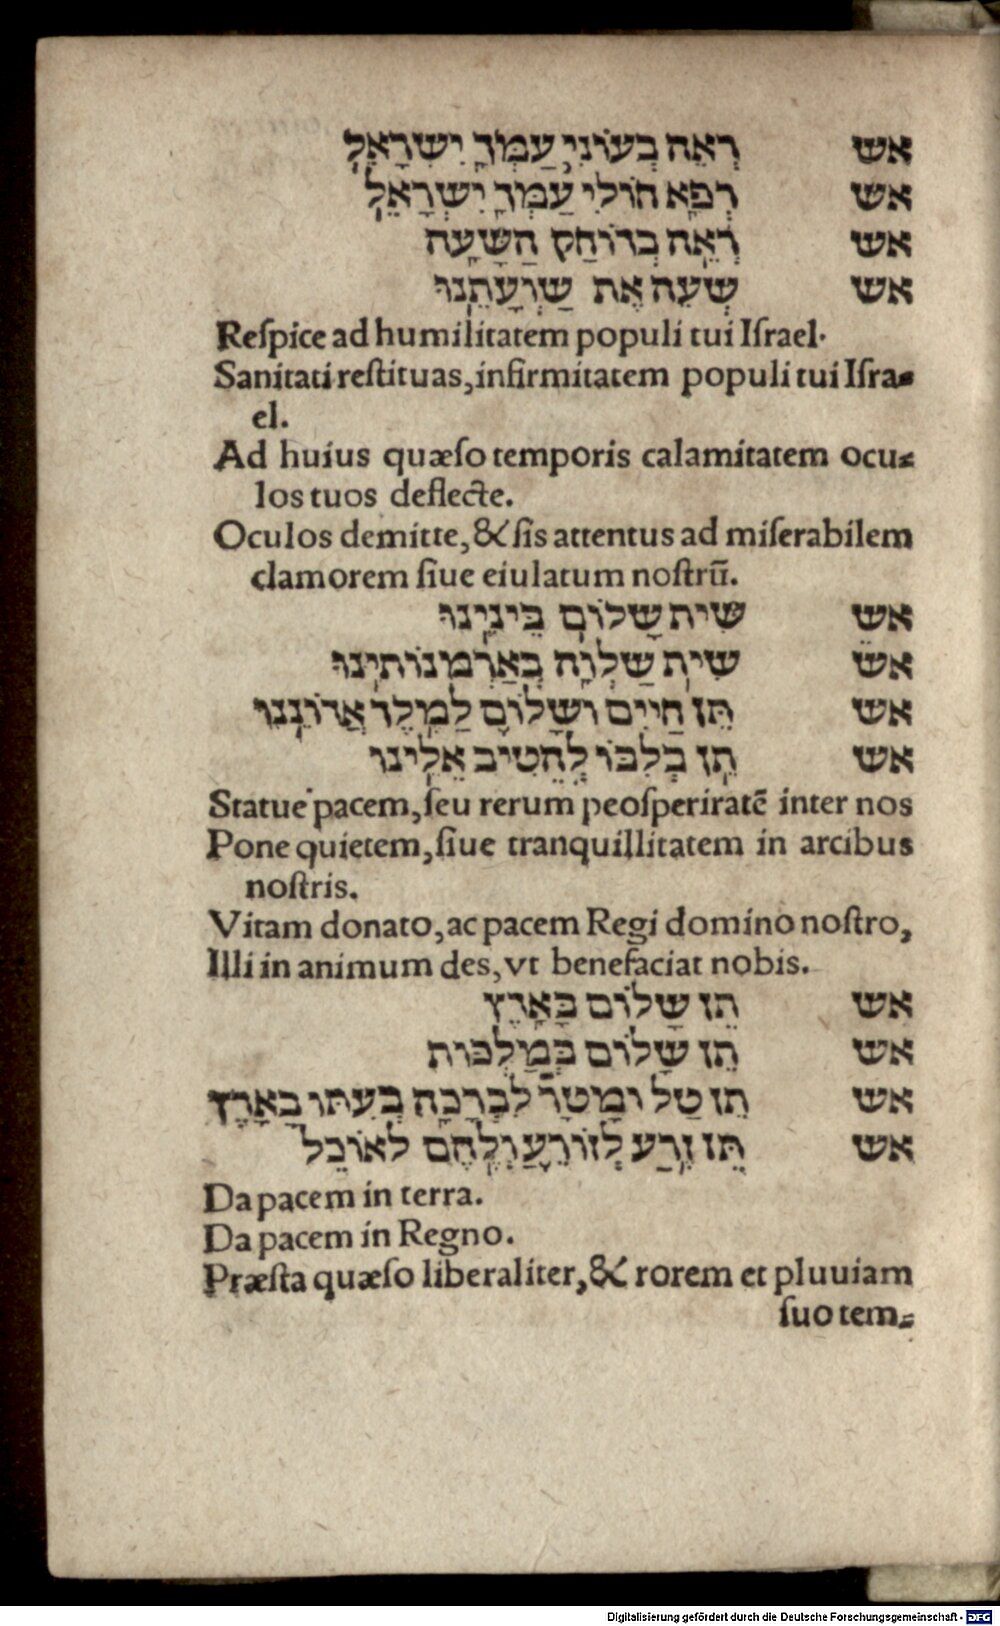 אש רְאֵה בְעוֹנִי עַמְּךָ יִשְׂרָאֵל
אש רְפָא חוֹלִי עַמְּךָ יִשְׂרָאֵל
אש רְאֵה בְדוֹחַק הַשָּׁעָה
אש שְׁעֵה אֶת שַׁוְעָתֵנוּ
Reſpice ad humilitatem populi tui Iſrael.
Sanitati reſtituas, infirmitatem populi tui Iſra-
el.
Ad huius quæſo temporis calamitatem ocu-
los tuos deflecte.
Oculos demitte, & ſis attentus ad miſerabilem
clamorem ſiue eiulatum noſtrū.
אש שִׂית שָׁלוֹם בֵּינֵינוּ
אש שִׂית שַׁלְוָה בְּאַרְמְנוֹתֵינוּ
אש תֵּן חַיִּים וְשָׁלוֹם לַמֶּלֶךְ אֲדוֹנֵנוּ
אש תֵּן בְּלִבּוֹ לְהֵטִיב אֵלֵינוּ
Statue pacem, ſeu rerum peoſperiratē inter nos
Pone quietem, ſiue tranquillitatem in arcibus
noſtris.
Vitam donato, ac pacem Regi domino noſtro,
Illi in animum des, vt benefaciat nobis.
אש תֵּן שָׁלוֹם בָּאָרֶץ
אש תֵּן שָׁלוֹם בְּמַלְכוּת
אש תֵן טַל וּמָטָר לִבְרָכָה בְעִתּוֹ בָאָרֶץ
אש תֵּן זֶרַע לַזוֹרֵעַ וְלֶחֶם לאוֹכֵל
Da pacem in terra.
Da pacem in Regno.
Præſta quæſo liberaliter, & rorem et pluuiam
ſuo tem-
Digitalisierung gefördert durch die Deutsche Forschungsgemeinschaft - DFG